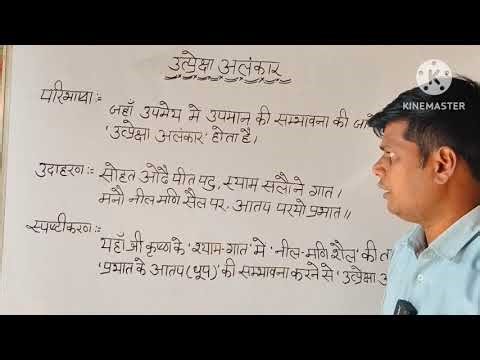 उत्प्रेक्षा अलंकार
परिभाषा :-
जहाँ उपमेय मे उपमान की सम्भावना की जा
'उत्प्रेक्षा अलंकार' होता है।
उदाहरण :- सोहत ओढ़ै पीत पटु, स्याम सलौने गात।
मनौ नील मणि सैल पर, आतप परयो प्रभात॥
स्पष्टीकरण :-
यहाँ श्री कृष्ण के 'श्याम-गात' मे 'नील-मणि शैल' की त
'प्रभात के आतप (धूप)' की सम्भावना करने से 'उत्प्रेक्षा अ
KINEMASTER